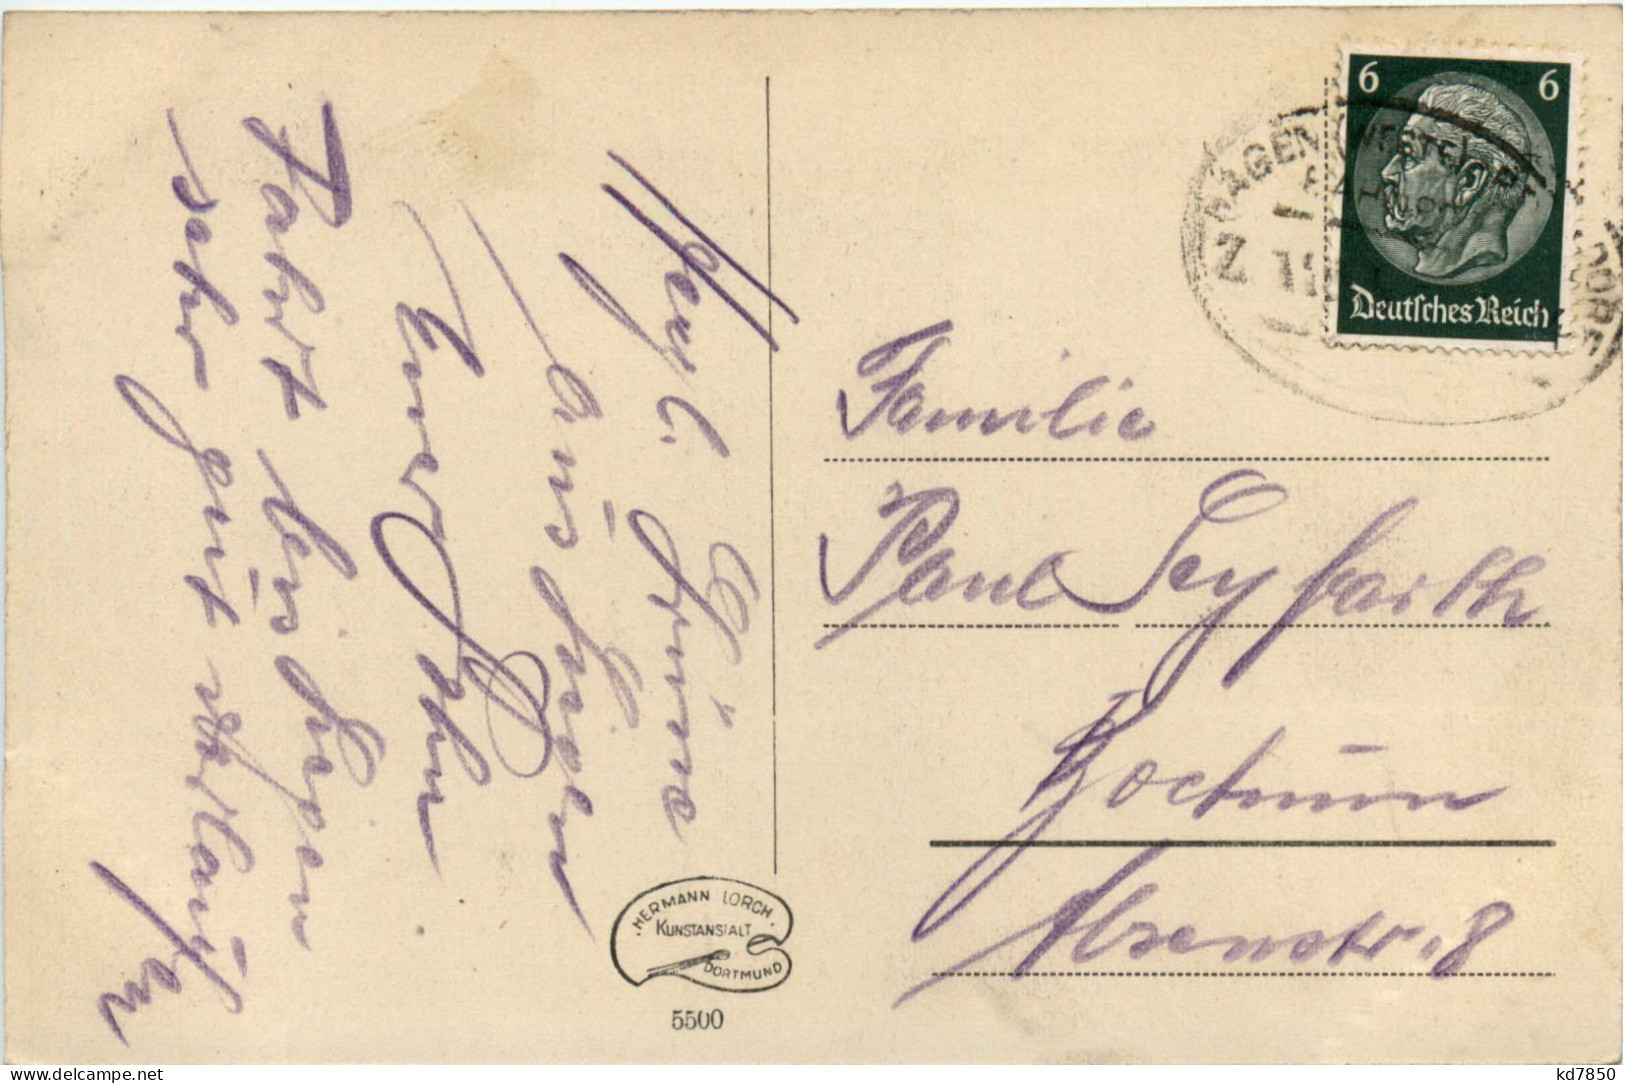 Herzl. Grüsse
aus Hagen
Euer
Fahrt bis Hagen
sehr gut verlaufen
Familie
Paul Seyfarth
Bochum
Alsenstr. 8
6 6
Deutsches Reich
HAGEN (WESTF)
Z
HERMANN LORCH
KUNSTANSTALT
DORTMUND
5500
kd7850